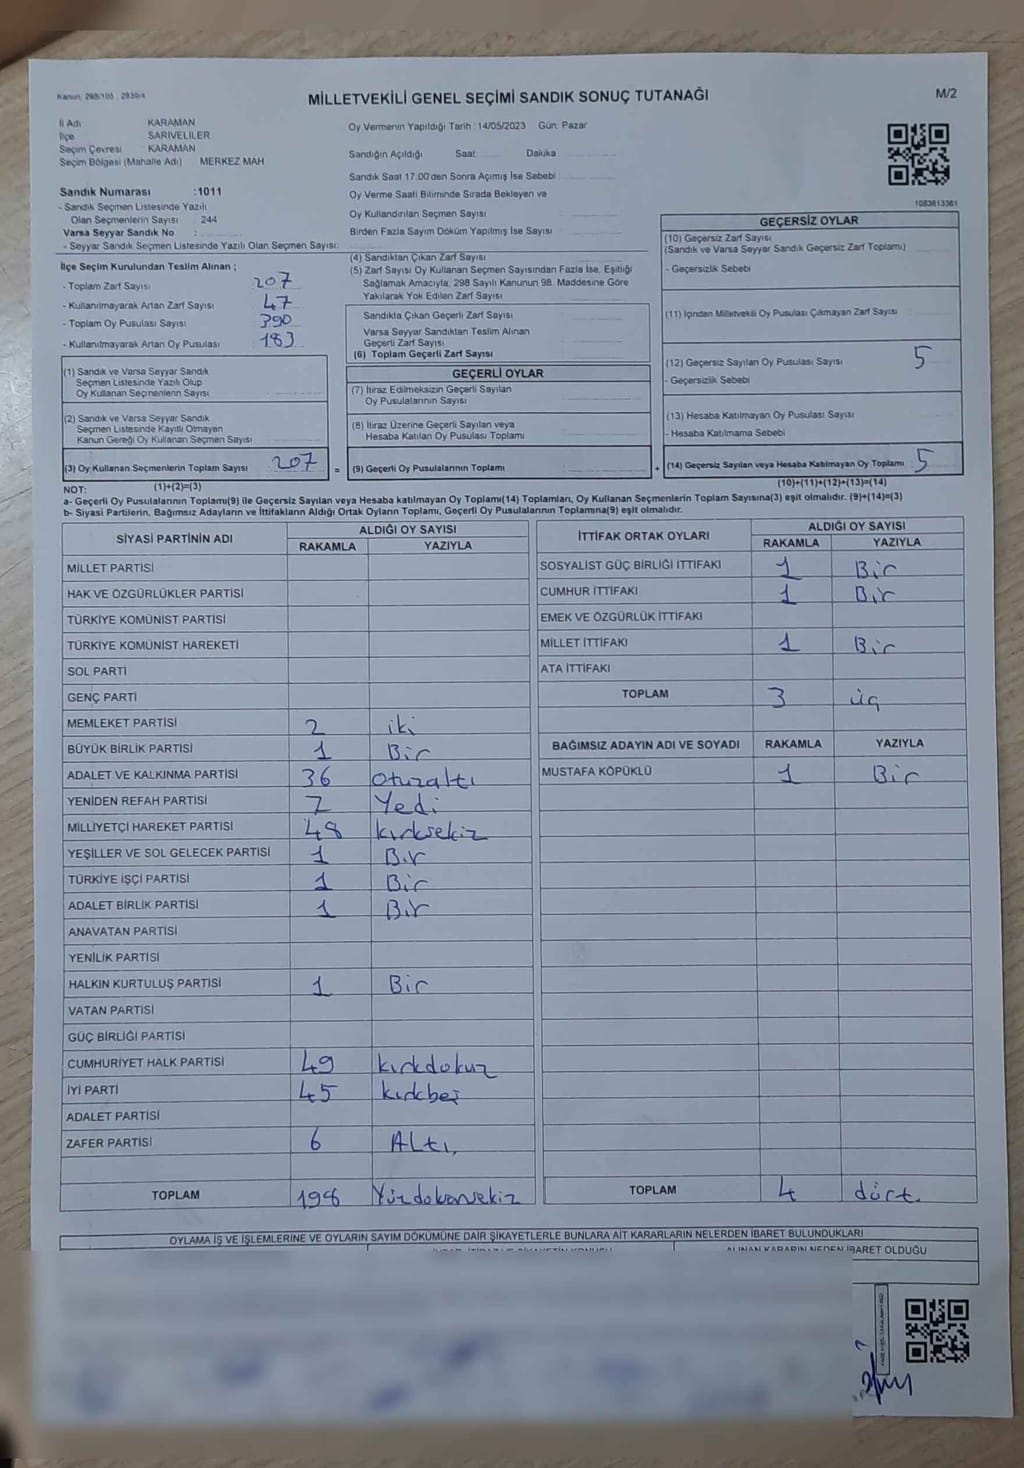 Kanun: 298/105 , 2839/4
MİLLETVEKİLİ GENEL SEÇİMİ SANDIK SONUÇ TUTANAĞI
M/2
İl Adı KARAMAN
İlçe SARIVELİLER
Seçim Çevresi KARAMAN
Seçim Bölgesi (Mahalle Adı) MERKEZ MAH
Oy Vermenin Yapıldığı Tarih : 14/05/2023 Gün: Pazar
Sandığın Açıldığı Saat: Dakika
Sandık Saat 17:00'den Sonra Açımış İse Sebebi
Oy Verme Saati Bitiminde Sırada Bekleyen ve
Oy Kullandırılan Seçmen Sayısı
Birden Fazla Sayım Döküm Yapılmış İse Sayısı
1083613361
Sandık Numarası :1011
- Sandık Seçmen Listesinde Yazılı
Olan Seçmenlerin Sayısı 244
Varsa Seyyar Sandık No :
- Seyyar Sandık Seçmen Listesinde Yazılı Olan Seçmen Sayısı:
İlçe Seçim Kurulundan Teslim Alınan ;
- Toplam Zarf Sayısı 207
- Kullanılmayarak Artan Zarf Sayısı 47
- Toplam Oy Pusulası Sayısı 390
- Kullanılmayarak Artan Oy Pusulası 183
(1) Sandık ve Varsa Seyyar Sandık
Seçmen Listesinde Yazılı Olup
Oy Kullanan Seçmenlerin Sayısı
(2) Sandık ve Varsa Seyyar Sandık
Seçmen Listesinde Kayıtlı Olmayan
Kanun Gereği Oy Kullanan Seçmen Sayısı
(3) Oy Kullanan Seçmenlerin Toplam Sayısı 207 =
(1)+(2)=(3)
(4) Sandıktan Çıkan Zarf Sayısı
(5) Zarf Sayısı Oy Kullanan Seçmen Sayısından Fazla İse, Eşitliği
Sağlamak Amacıyla, 298 Sayılı Kanunun 98. Maddesine Göre
Yakılarak Yok Edilen Zarf Sayısı
Sandıkta Çıkan Geçerli Zarf Sayısı
Varsa Seyyar Sandıktan Teslim Alınan
Geçerli Zarf Sayısı
(6) Toplam Geçerli Zarf Sayısı
GEÇERLİ OYLAR
(7) İtiraz Edilmeksizin Geçerli Sayılan
Oy Pusulalarının Sayısı
(8) İtiraz Üzerine Geçerli Sayılan veya
Hesaba Katılan Oy Pusulası Toplamı
(9) Geçerli Oy Pusulalarının Toplamı +
GEÇERSİZ OYLAR
(10) Geçersiz Zarf Sayısı
(Sandık ve Varsa Seyyar Sandık Geçersiz Zarf Toplamı)
- Geçersizlik Sebebi
(11) İçinden Milletvekili Oy Pusulası Çıkmayan Zarf Sayısı
(12) Geçersiz Sayılan Oy Pusulası Sayısı 5
- Geçersizlik Sebebi
(13) Hesaba Katılmayan Oy Pusulası Sayısı
- Hesaba Katılmama Sebebi
(14) Geçersiz Sayılan veya Hesaba Katılmayan Oy Toplamı 5
(10)+(11)+(12)+(13)=(14)
NOT:
a- Geçerli Oy Pusulalarının Toplamı(9) ile Geçersiz Sayılan veya Hesaba katılmayan Oy Toplamı(14) Toplamları, Oy Kullanan Seçmenlerin Toplam Sayısına(3) eşit olmalıdır. (9)+(14)=(3)
b- Siyasi Partilerin, Bağımsız Adayların ve İttifakların Aldığı Ortak Oyların Toplamı, Geçerli Oy Pusulalarının Toplamına(9) eşit olmalıdır.
SİYASİ PARTİNİN ADI ALDIĞI OY SAYISI
RAKAMLA YAZIYLA
MİLLET PARTİSİ
HAK VE ÖZGÜRLÜKLER PARTİSİ
TÜRKİYE KOMÜNİST PARTİSİ
TÜRKİYE KOMÜNİST HAREKETİ
SOL PARTİ
GENÇ PARTİ
MEMLEKET PARTİSİ 2 iki
BÜYÜK BİRLİK PARTİSİ 1 Bir
ADALET VE KALKINMA PARTİSİ 36 Otuzaltı
YENİDEN REFAH PARTİSİ 7 Yedi
MİLLİYETÇİ HAREKET PARTİSİ 48 kırksekiz
YEŞİLLER VE SOL GELECEK PARTİSİ 1 Bir
TÜRKİYE İŞÇİ PARTİSİ 1 Bir
ADALET BİRLİK PARTİSİ 1 Bir
ANAVATAN PARTİSİ
YENİLİK PARTİSİ
HALKIN KURTULUŞ PARTİSİ 1 Bir
VATAN PARTİSİ
GÜÇ BİRLİĞİ PARTİSİ
CUMHURİYET HALK PARTİSİ 49 kırkdokuz
İYİ PARTİ 45 kırkbeş
ADALET PARTİSİ
ZAFER PARTİSİ 6 Altı
TOPLAM 198 Yüzdoksansekiz
İTTİFAK ORTAK OYLARI ALDIĞI OY SAYISI
RAKAMLA YAZIYLA
SOSYALİST GÜÇ BİRLİĞİ İTTİFAKI 1 Bir
CUMHUR İTTİFAKI 1 Bir
EMEK VE ÖZGÜRLÜK İTTİFAKI
MİLLET İTTİFAKI 1 Bir
ATA İTTİFAKI
TOPLAM 3 üç
BAĞIMSIZ ADAYIN ADI VE SOYADI RAKAMLA YAZIYLA
MUSTAFA KÖPÜKLÜ 1 Bir
TOPLAM 4 dört.
OYLAMA İŞ VE İŞLEMLERİNE VE OYLARIN SAYIM DÖKÜMÜNE DAİR ŞİKAYETLERLE BUNLARA AİT KARARLARIN NELERDEN İBARET BULUNDUKLARI
ALINAN KARARIN NEDEN İBARET OLDUĞU